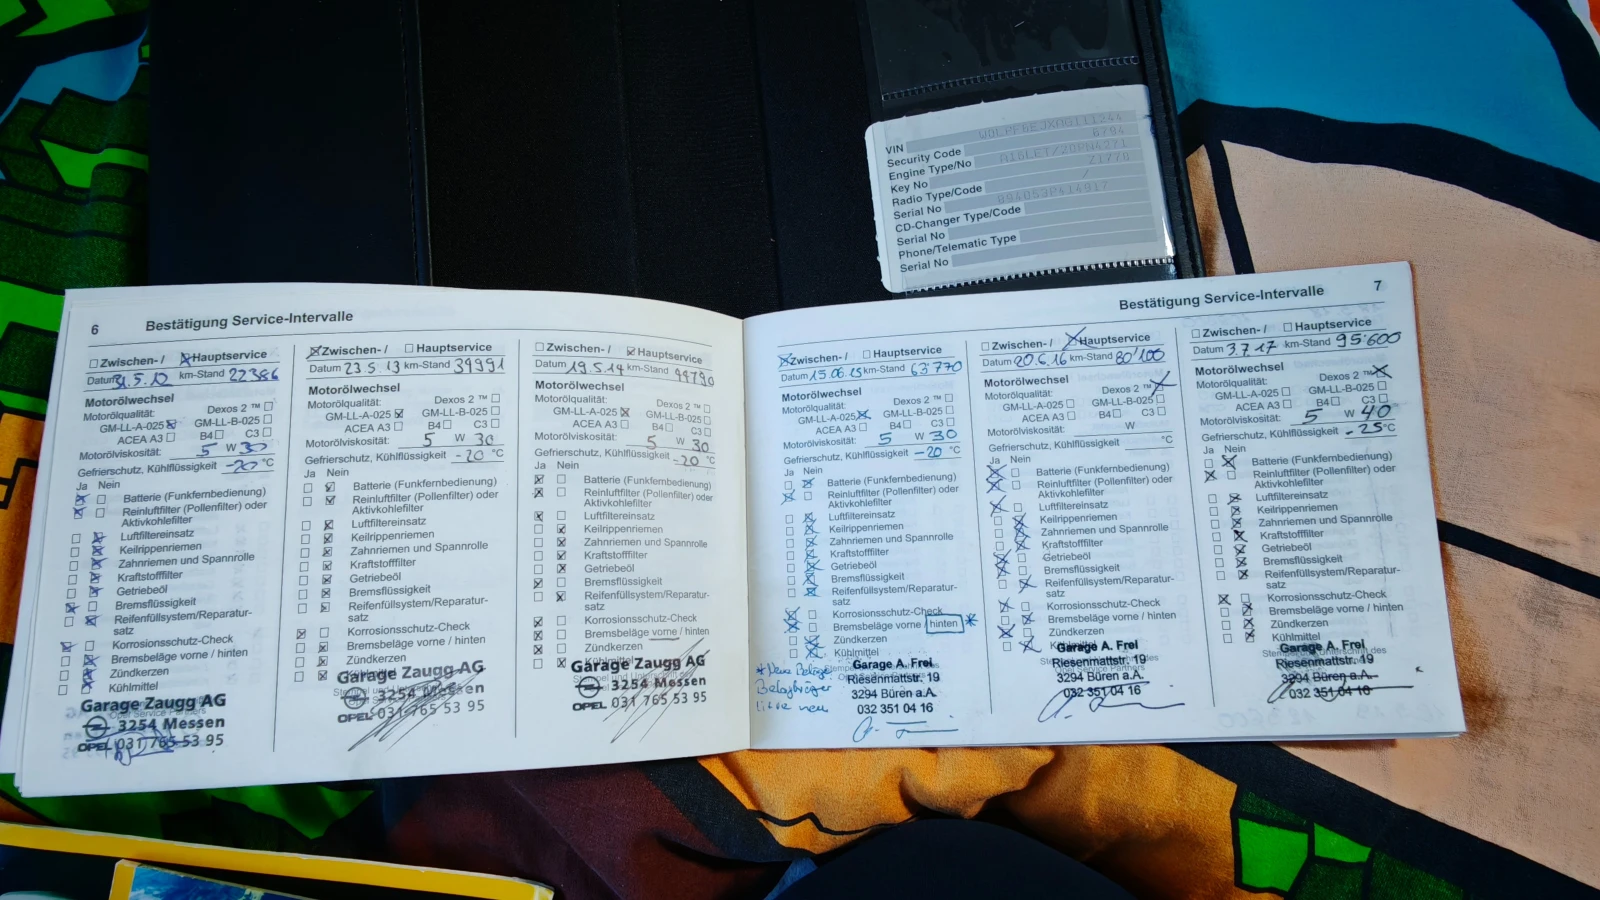 VIN W0LPF6EJXAG111244
Security Code 6784
Engine Type/No A16LET/20PN4271
Key No Z1770
Radio Type/Code /
Serial No 894053P414917
CD-Changer Type/Code
Serial No
Phone/Telematic Type
Serial No
6 Bestätigung Service-Intervalle
Zwischen- / Hauptservice
Datum 31.5.12 km-Stand 22386
Motorölwechsel
Motorölqualität: Dexos 2 ™
GM-LL-A-025 GM-LL-B-025
ACEA A3 B4 C3
Motorölviskosität: 5 W 30
Gefrierschutz, Kühlflüssigkeit -20 °C
Ja Nein
Batterie (Funkfernbedienung)
Reinluftfilter (Pollenfilter) oder
Aktivkohlefilter
Luftfiltereinsatz
Keilrippenriemen
Zahnriemen und Spannrolle
Kraftstofffilter
Getriebeöl
Bremsflüssigkeit
Reifenfüllsystem/Reparatur-
satz
Korrosionsschutz-Check
Bremsbeläge vorne / hinten
Zündkerzen
Kühlmittel
Garage Zaugg AG
3254 Messen
OPEL 031 765 53 95
Zwischen- / Hauptservice
Datum 23.5.13 km-Stand 34991
Motorölwechsel
Motorölqualität: Dexos 2 ™
GM-LL-A-025 GM-LL-B-025
ACEA A3 B4 C3
Motorölviskosität: 5 W 30
Gefrierschutz, Kühlflüssigkeit -20 °C
Ja Nein
Batterie (Funkfernbedienung)
Reinluftfilter (Pollenfilter) oder
Aktivkohlefilter
Luftfiltereinsatz
Keilrippenriemen
Zahnriemen und Spannrolle
Kraftstofffilter
Getriebeöl
Bremsflüssigkeit
Reifenfüllsystem/Reparatur-
satz
Korrosionsschutz-Check
Bremsbeläge vorne / hinten
Zündkerzen
Garage Zaugg AG
3254 Messen
OPEL 031 765 53 95
Zwischen- / Hauptservice
Datum 19.5.14 km-Stand 44790
Motorölwechsel
Motorölqualität: Dexos 2 ™
GM-LL-A-025 GM-LL-B-025
ACEA A3 B4 C3
Motorölviskosität: 5 W 30
Gefrierschutz, Kühlflüssigkeit -20 °C
Ja Nein
Batterie (Funkfernbedienung)
Reinluftfilter (Pollenfilter) oder
Aktivkohlefilter
Luftfiltereinsatz
Keilrippenriemen
Zahnriemen und Spannrolle
Kraftstofffilter
Getriebeöl
Bremsflüssigkeit
Reifenfüllsystem/Reparatur-
satz
Korrosionsschutz-Check
Bremsbeläge vorne / hinten
Zündkerzen
Kühlmittel
Garage Zaugg AG
3254 Messen
OPEL 031 765 53 95
Bestätigung Service-Intervalle 7
Zwischen- / Hauptservice
Datum 15.06.15 km-Stand 63770
Motorölwechsel
Motorölqualität: Dexos 2 ™
GM-LL-A-025 GM-LL-B-025
ACEA A3 B4 C3
Motorölviskosität: 5 W 30
Gefrierschutz, Kühlflüssigkeit -20 °C
Ja Nein
Batterie (Funkfernbedienung)
Reinluftfilter (Pollenfilter) oder
Aktivkohlefilter
Luftfiltereinsatz
Keilrippenriemen
Zahnriemen und Spannrolle
Kraftstofffilter
Getriebeöl
Bremsflüssigkeit
Reifenfüllsystem/Reparatur-
satz
Korrosionsschutz-Check
Bremsbeläge vorne / hinten *
Zündkerzen
Kühlmittel
* Neue Beläge
Belagträger
neu
Garage A. Frei
Riesenmattstr. 19
3294 Büren a.A.
032 351 04 16
Zwischen- / Hauptservice
Datum 20.6.16 km-Stand 80'100
Motorölwechsel
Motorölqualität: Dexos 2 ™
GM-LL-A-025 GM-LL-B-025
ACEA A3 B4 C3
Motorölviskosität: W
Gefrierschutz, Kühlflüssigkeit °C
Ja Nein
Batterie (Funkfernbedienung)
Reinluftfilter (Pollenfilter) oder
Aktivkohlefilter
Luftfiltereinsatz
Keilrippenriemen
Zahnriemen und Spannrolle
Kraftstofffilter
Getriebeöl
Bremsflüssigkeit
Reifenfüllsystem/Reparatur-
satz
Korrosionsschutz-Check
Bremsbeläge vorne / hinten
Zündkerzen
Kühlmittel
Garage A. Frei
Riesenmattstr. 19
3294 Büren a.A.
032 351 04 16
Zwischen- / Hauptservice
Datum 3.7.17 km-Stand 95'600
Motorölwechsel
Motorölqualität: Dexos 2 ™
GM-LL-A-025 GM-LL-B-025
ACEA A3 B4 C3
Motorölviskosität: 5 W 40
Gefrierschutz, Kühlflüssigkeit -25 °C
Ja Nein
Batterie (Funkfernbedienung)
Reinluftfilter (Pollenfilter) oder
Aktivkohlefilter
Luftfiltereinsatz
Keilrippenriemen
Zahnriemen und Spannrolle
Kraftstofffilter
Getriebeöl
Bremsflüssigkeit
Reifenfüllsystem/Reparatur-
satz
Korrosionsschutz-Check
Bremsbeläge vorne / hinten
Zündkerzen
Kühlmittel
Garage A. Frei
Riesenmattstr. 19
3294 Büren a.A.
032 351 04 16